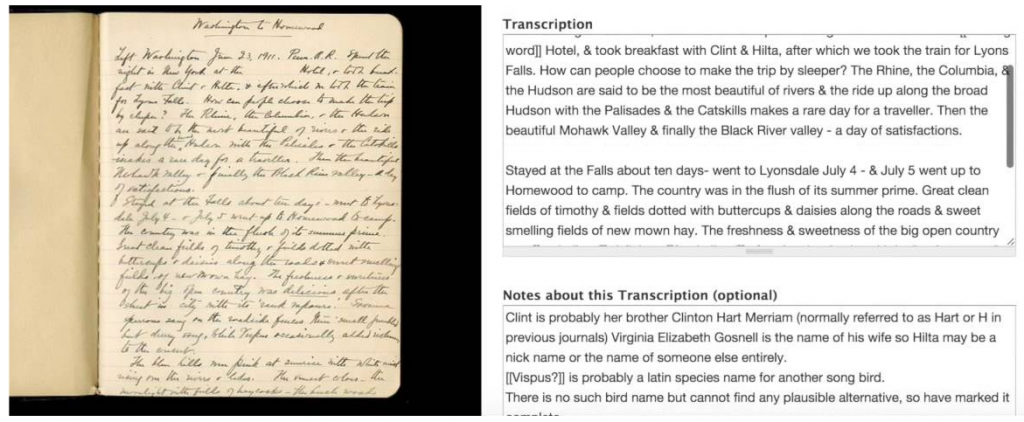 Washington to Homewood
Left Washington Jun. 23, 1911. Penn. R.R. Spent the
night in New York at the Hotel, & took break-
fast with Clint & Hilta, & after which we took the train
for Lyons Falls. How can people choose to make the trip
by sleeper? The Rhine, the Columbia, & the Hudson
are said to be the most beautiful of rivers & the ride
up along the Hudson with the Palisades & the Catskills
makes a rare day for a traveller. Then the beautiful
Mohawk Valley & finally the Black River valley - a day
of satisfactions.
Stayed at the Falls about ten days - went to Lyons-
dale July 4 - & July 5 went up to Homewood to camp.
The country was in the flush of its summer prime.
Great clean fields of timothy & fields dotted with
buttercups & daisies along the roads & sweet smelling
fields of new mown hay. The freshness & sweetness
of the big open country was delicious after the
city with its
sang on the roadside fences their small
but song, while occasionally added
to the
The blue hills were pink at sunrise with white mist
rising from the rivers & lakes. The sunset colors - the
moonlight with fields of haycocks - the woods
Transcription
word]] Hotel, & took breakfast with Clint & Hilta, after which we took the train for Lyons
Falls. How can people choose to make the trip by sleeper? The Rhine, the Columbia, &
the Hudson are said to be the most beautiful of rivers & the ride up along the broad
Hudson with the Palisades & the Catskills makes a rare day for a traveller. Then the
beautiful Mohawk Valley & finally the Black River valley - a day of satisfactions.
Stayed at the Falls about ten days- went to Lyonsdale July 4 - & July 5 went up to
Homewood to camp. The country was in the flush of its summer prime. Great clean
fields of timothy & fields dotted with buttercups & daisies along the roads & sweet
smelling fields of new mown hay. The freshness & sweetness of the big open country
Notes about this Transcription (optional)
Clint is probably her brother Clinton Hart Merriam (normally referred to as Hart or H in
previous journals) Virginia Elizabeth Gosnell is the name of his wife so Hilta may be a
nick name or the name of someone else entirely.
[[Vispus?]] is probably a latin species name for another song bird.
There is no such bird name but cannot find any plausible alternative, so have marked it